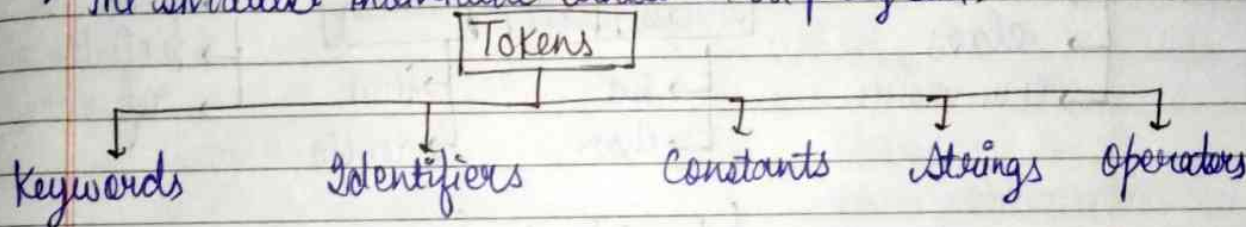 Tokens
Keywords Identifiers Constants Strings Operators